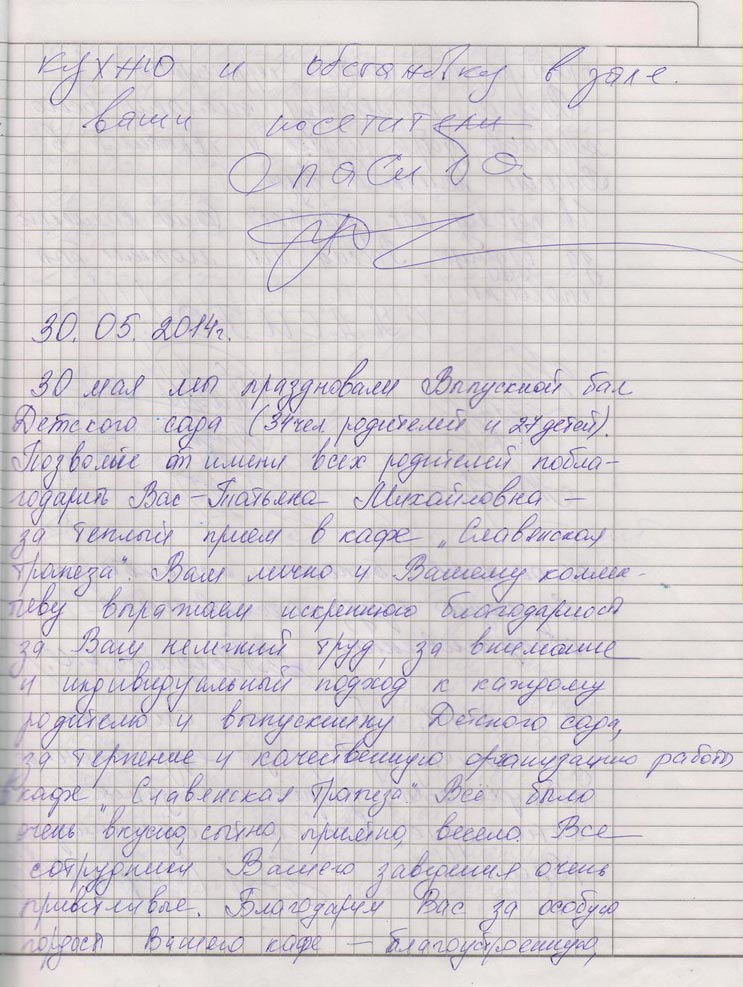 кухню и обстановку в зале.
ваши посетители
Спасибо.
30.05.2014г.
30 мая мы праздновали Выпускной бал
Детского сада (34 чел родителей и 27 детей).
Позвольте от имени всех родителей побла-
годарить Вас – Татьяна Михайловна –
за теплый прием в кафе „Славянская
трапеза". Вам лично и Вашему коллек-
тиву выражаем искреннюю благодарность
за Ваш нелегкий труд, за внимание
и индивидуальный подход к каждому
родителю и выпускнику Детского сада,
за терпение и качественную организацию работы
кафе „Славянская Трапеза" Все было
очень вкусно, сытно, приятно, весело. Все
сотрудники Вашего заведения очень
приветливые. Благодарим Вас за особую
гордость Вашего кафе – благоустроенную,